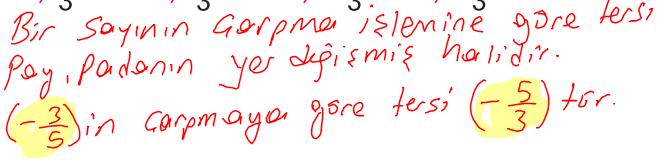 Bir sayının çarpma işlemine göre tersi
Pay, Padanın yer değişmiş halidir.
(-3/5)in çarpmaya göre tersi (-5/3) tür.